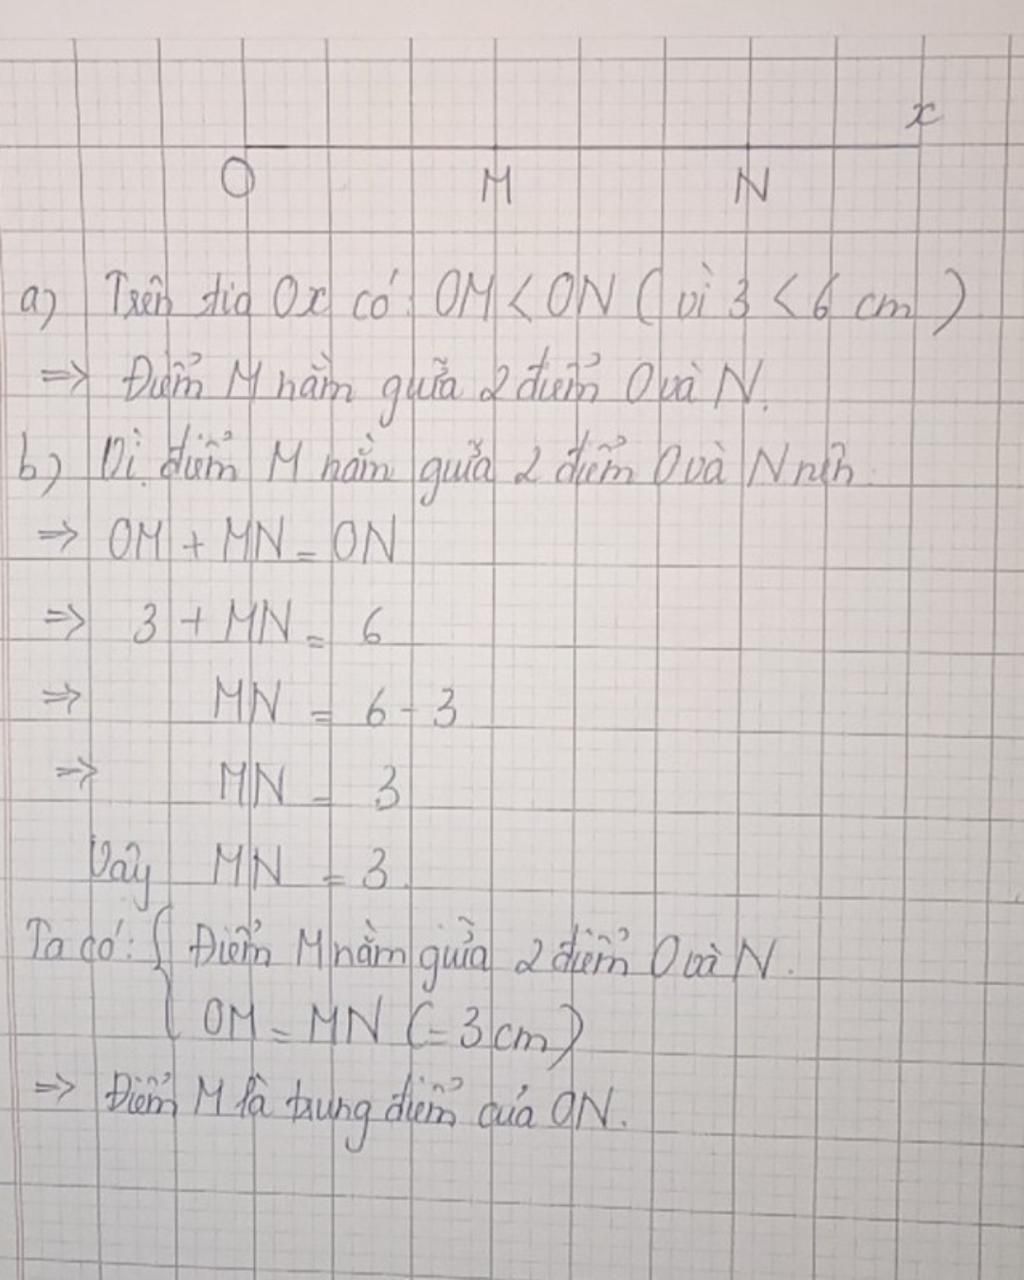 x
O M N
a) Trên tia Ox có: OM < ON ( vì 3 < 6 cm )
=> Điểm M nằm giữa 2 điểm O và N.
b) Vì điểm M nằm giữa 2 điểm O và N nên
=> OM + MN = ON
=> 3 + MN = 6
=> MN = 6 - 3
=> MN = 3
Vậy MN = 3
Ta có: { Điểm M nằm giữa 2 điểm O và N.
OM = MN (= 3 cm)
=> Điểm M là trung điểm của ON.